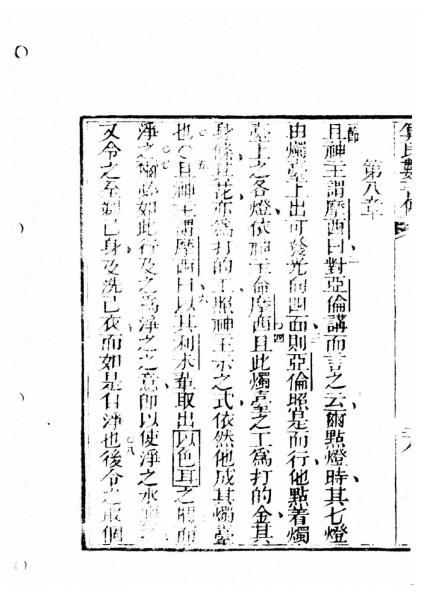 第八章
且神主謂摩西曰對亞倫講而言之云爾點燈時其七燈
由燭臺上出可發光向四面則亞倫照是而行他點着燭
臺上之各燈依神主命摩西且此燭臺之工為打的金其
身條其花亦為打的工照神主示之式依然他成其燭臺
也○且神主謂摩西曰以其利未輩取出以色耳之間而
淨之爾必如此行及之為淨之之意即以使淨之水
又令之至剃已身及洗已衣而如是自淨也後令之取個